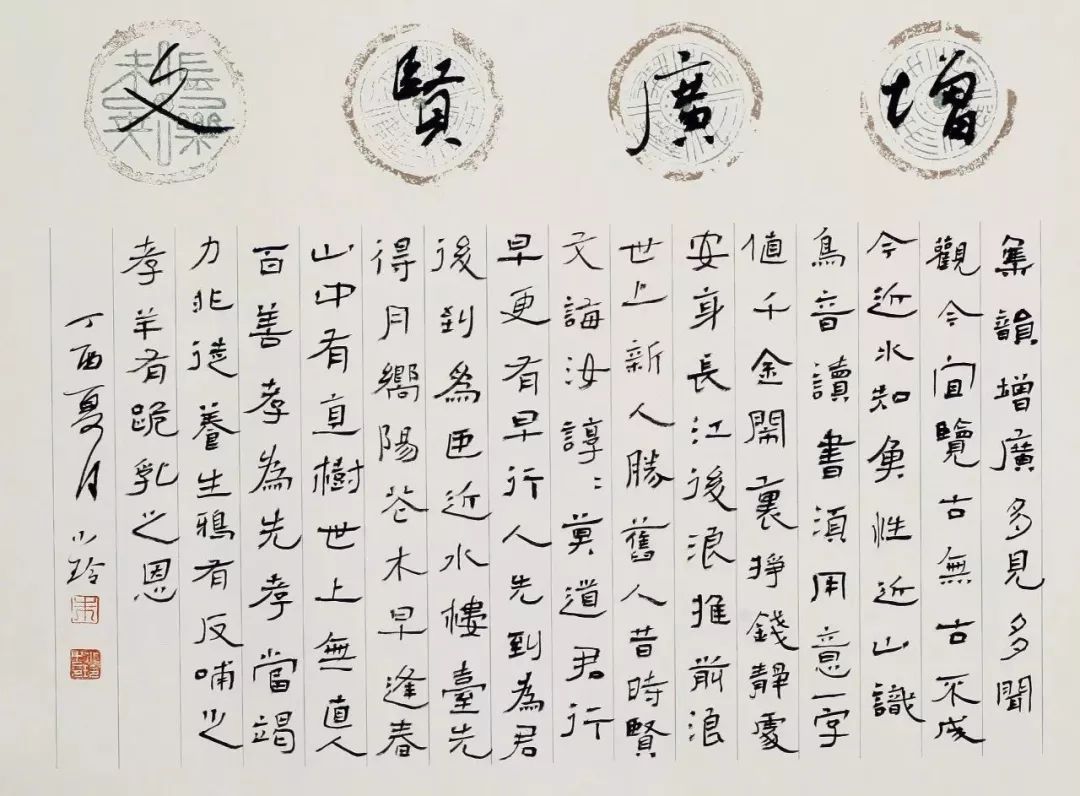 增廣賢文
集韻增廣多見多聞
觀今宜覽古無古不成
今近水知魚性近山識
鳥音讀書須用意一字
值千金鬧裏掙錢靜處
安身長江後浪推前浪
世上新人勝舊人昔時賢
文誨汝諄〻莫道君行
早更有早行人先到為君
後到為臣近水樓臺先
得月嚮陽花木早逢春
山中有直樹世上無直人
百善孝為先孝當竭
力非徒養生鴉有反哺之
孝羊有跪乳之恩
丁酉夏月 小玲
朱